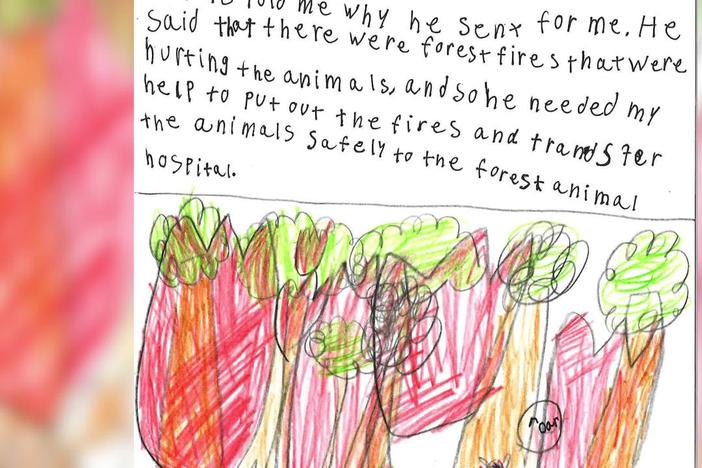 told me why he sent for me. He
said that there were forest fires that were
hurting the animals, and so he needed my
help to put out the fires and transfer
the animals safely to the forest animal
hospital.
roar